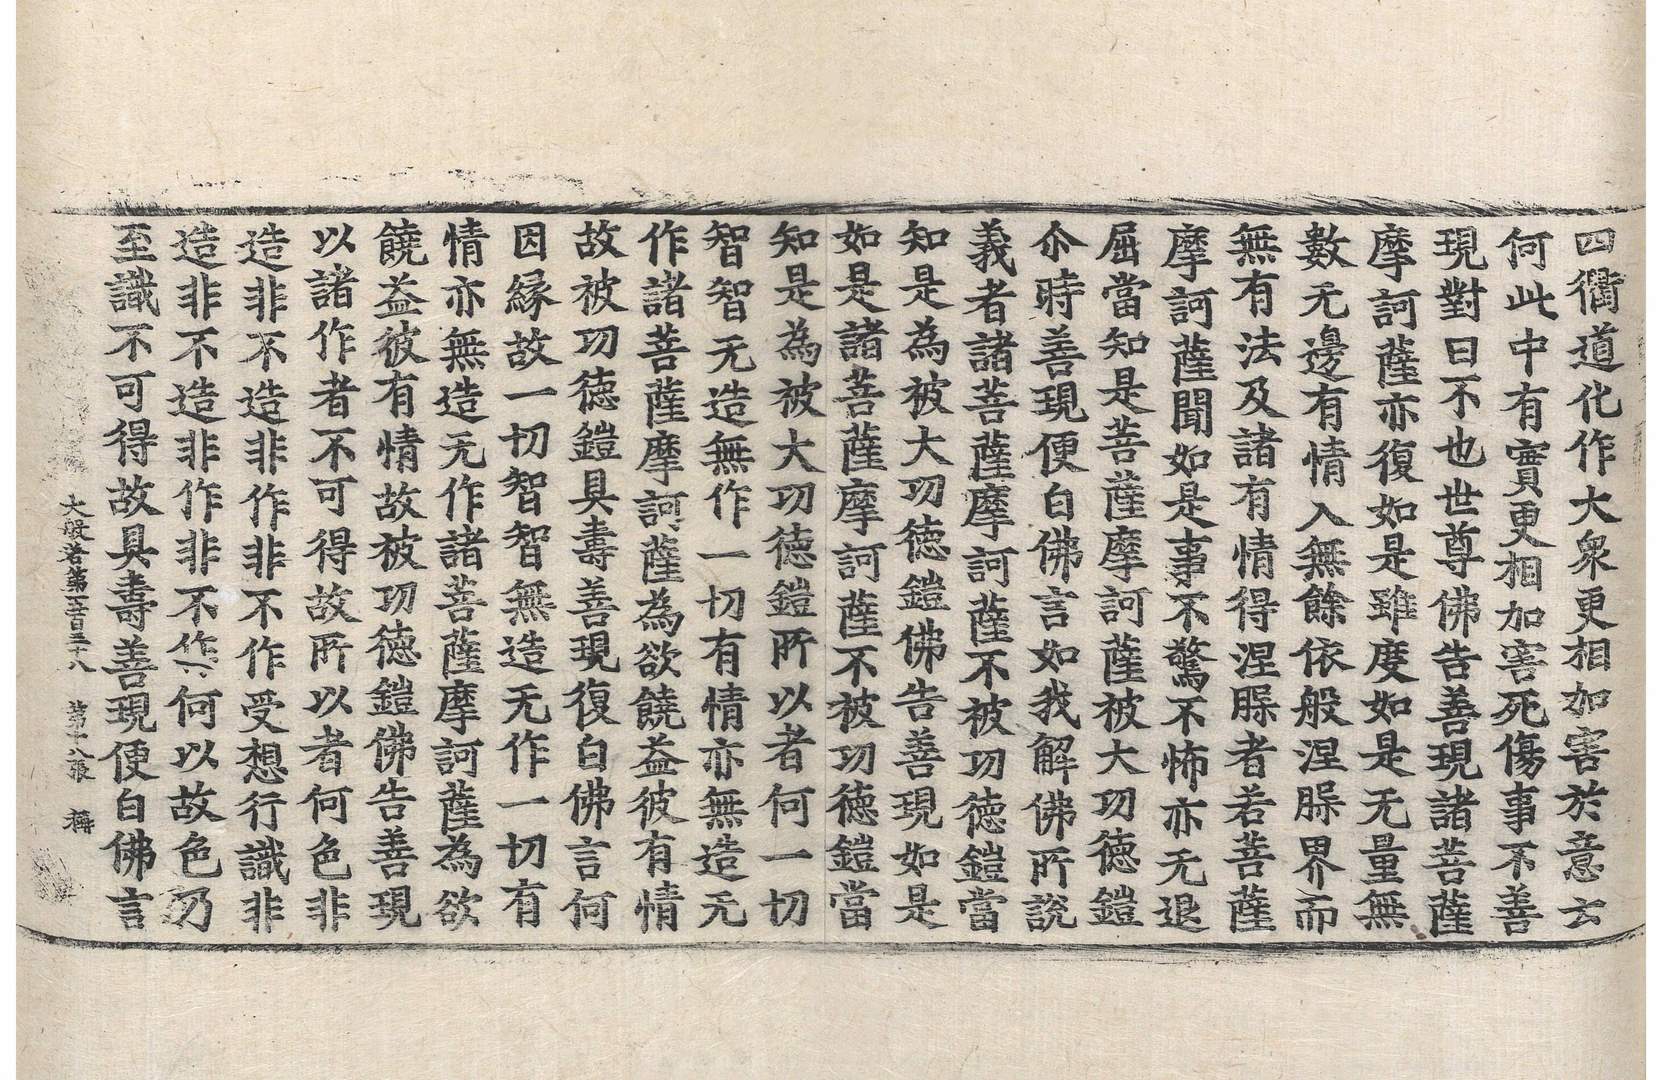 四衢道化作大衆更相加害於意云
何此中有實更相加害死傷事不善
現對曰不也世尊佛告善現諸菩薩
摩訶薩亦復如是雖度如是无量無
數无邊有情入無餘依般涅槃界而
無有法及諸有情得涅槃者若菩薩
摩訶薩聞如是事不驚不怖亦无退
屈當知是菩薩摩訶薩被大功德鎧
尒時善現便白佛言如我解佛所說
義者諸菩薩摩訶薩不被功德鎧當
知是為被大功德鎧佛告善現如是
如是諸菩薩摩訶薩不被功德鎧當
知是為被大功德鎧所以者何一切
智智无造無作一切有情亦無造无
作諸菩薩摩訶薩為欲饒益彼有情
故被功德鎧具壽善現復白佛言何
因緣故一切智智無造无作一切有
情亦無造无作諸菩薩摩訶薩為欲
饒益彼有情故被功德鎧佛告善現
以諸作者不可得故所以者何色非
造非不造非作非不作受想行識非
造非不造非作非不作何以故色乃
至識不可得故具壽善現便白佛言
大般若第五百三十八　第十八張　稱